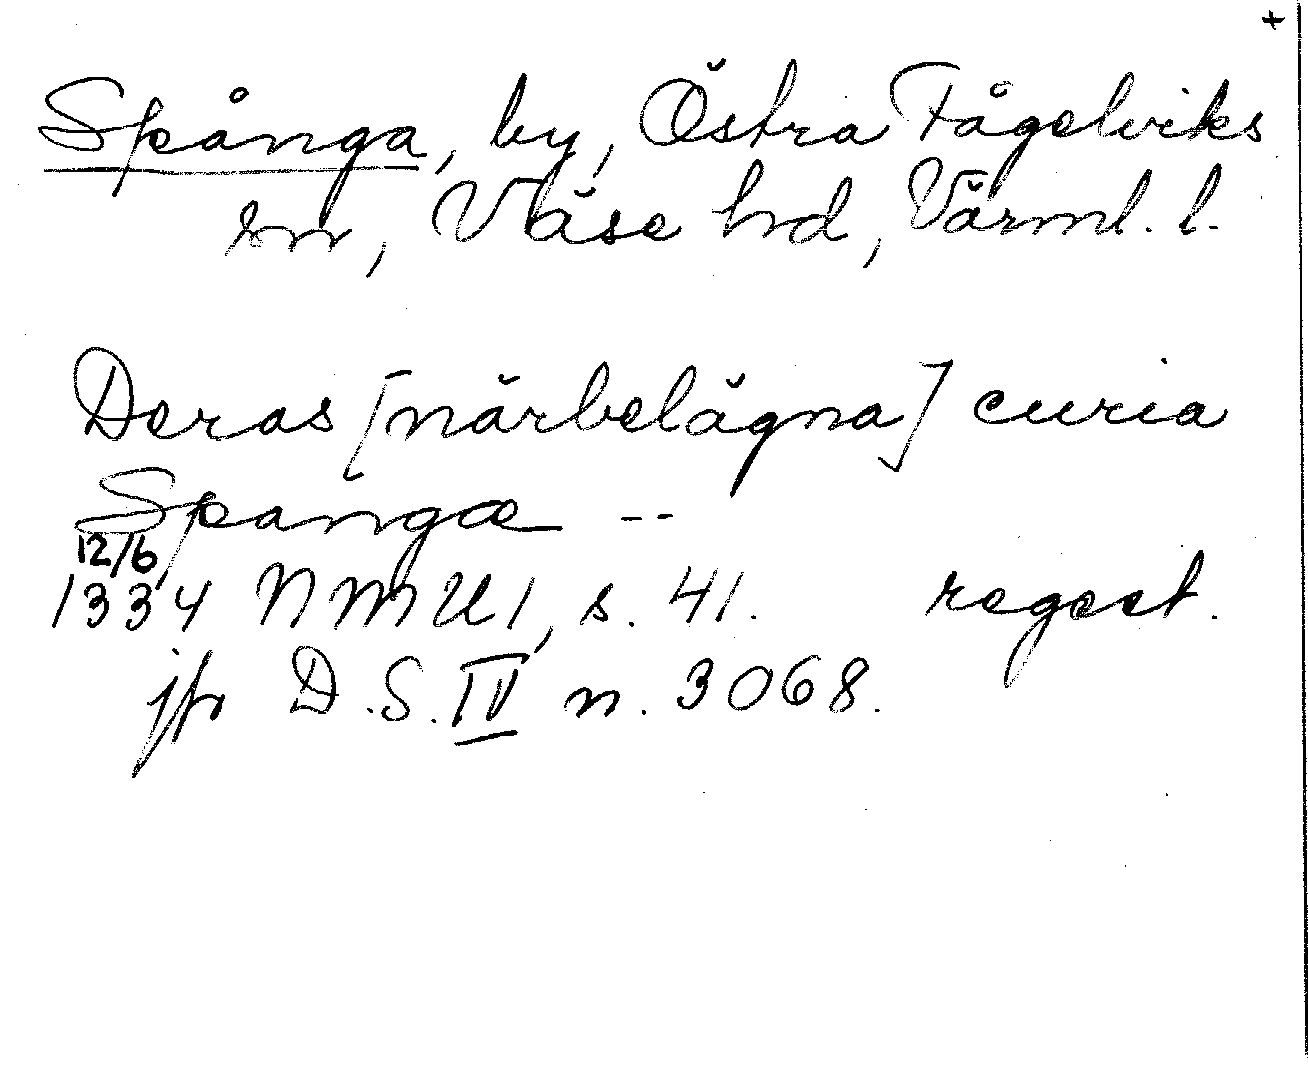 +
Spånga, by, Östra Fågelviks
sn, Väse hd, Värml. l.
Deras [närbelägna] curia
Spangæ --
12/6
1334 NMU 1, s. 41. regest.
jfr D.S. IV n. 3068.